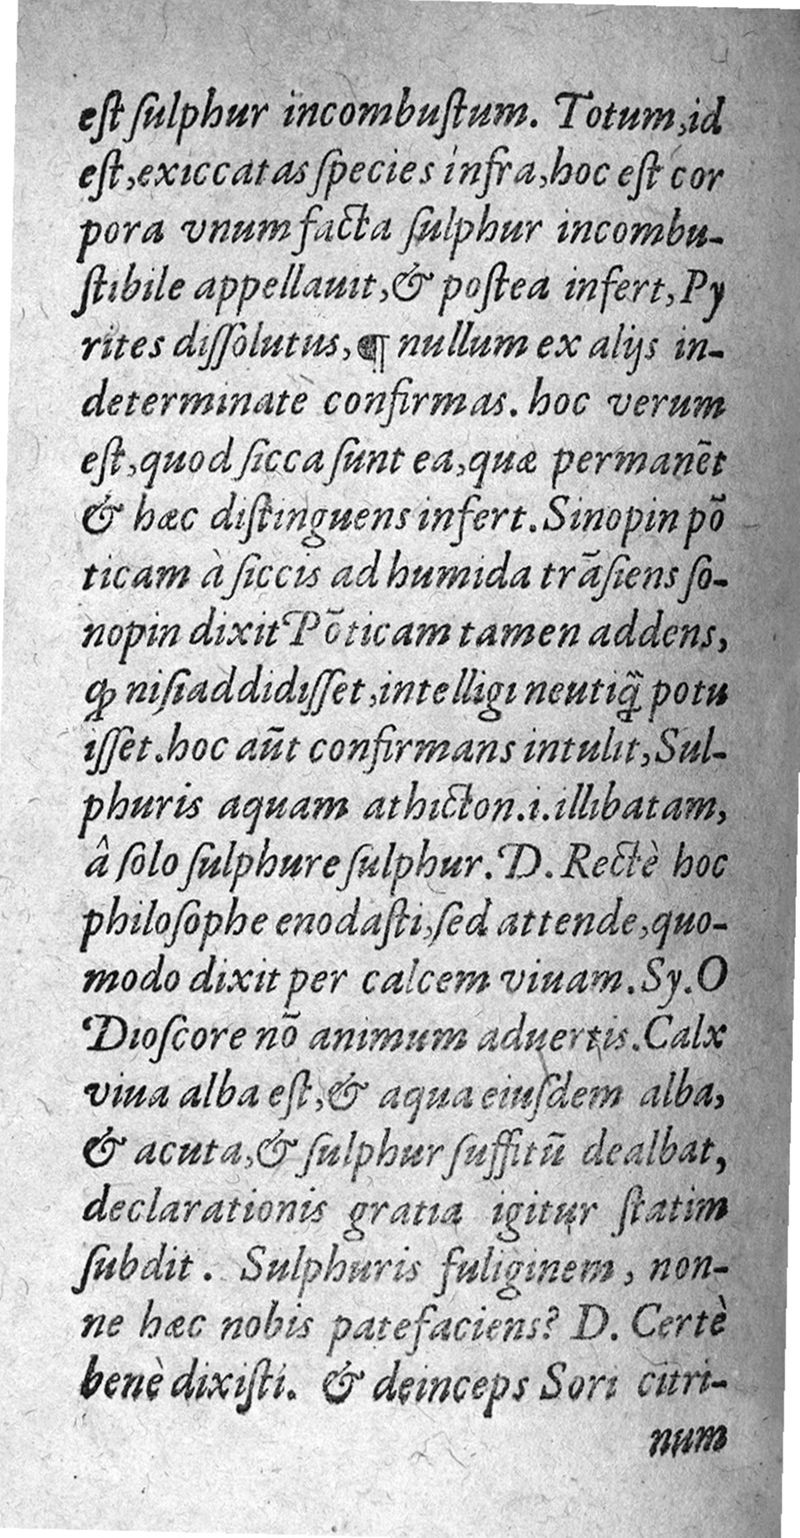 est sulphur incombustum. Totum, id
est, exiccatas species infra, hoc est cor
pora vnum facta sulphur incombu-
stibile appellauit, & postea infert, Py
rites dissolutus, ¶ nullum ex alijs in-
determinatè confirmas. hoc verum
est, quod sicca sunt ea, quæ permanẽt
& hæc distinguens infert. Sinopin põ
ticam à siccis ad humida trãsiens so-
nopin dixit Põticam tamen addens,
ꝙ nisi addidisset, intelligi neutiq̃ potu
isset. hoc aũt confirmans intulit, Sul-
phuris aquam athicton .i. illibatam,
â solo sulphure sulphur. D. Rectè hoc
philosophe enodasti, sed attende, quo-
modo dixit per calcem viuam. Sy. O
Dioscore nõ animum aduertis. Calx
viua alba est, & aqua eiusdem alba,
& acuta, & sulphur suffitũ dealbat,
declarationis gratia igitur statim
subdit. Sulphuris fuliginem, non-
ne hæc nobis patefaciens? D. Certè
benè dixisti. & deinceps Sori citri-
num